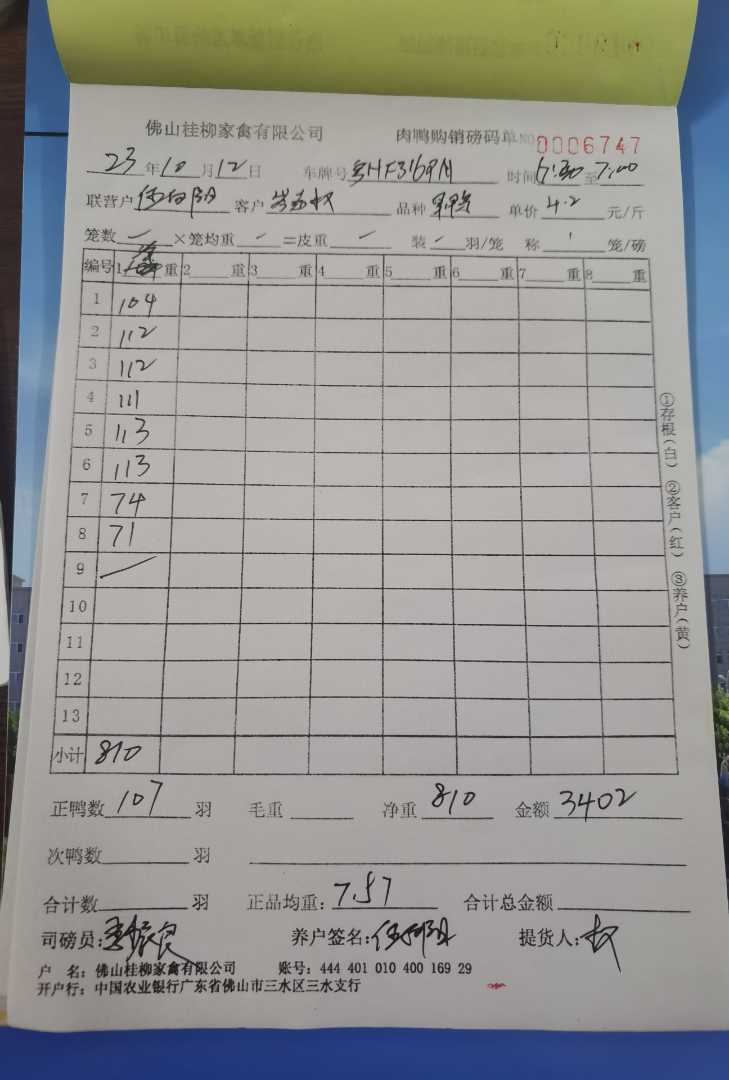 佛山桂柳家禽有限公司 肉鸭购销磅码单 NO 0006747
23年10月12日 车牌号 时间6:30至7:00
联营户 伍向阳 客户 品种 单价 4.2 元/斤
笼数 ×笼均重 =皮重 装 羽/笼 称 笼/磅
编号 1 重 2 重 3 重 4 重 5 重 6 重 7 重 8 重
1 104
2 112
3 112
4 111
5 113
6 113
7 74
8 71
9
10
11
12
13
小计 810
正鸭数 107 羽 毛重 净重 810 金额 3402
次鸭数 羽
合计数 羽 正品均重: 7.57 合计总金额
司磅员: 养户签名: 伍向阳 提货人: 权
户 名: 佛山桂柳家禽有限公司 账号: 444 401 010 400 169 29
开户行: 中国农业银行广东省佛山市三水区三水支行
①存根(白) ②客户(红) ③养户(黄)